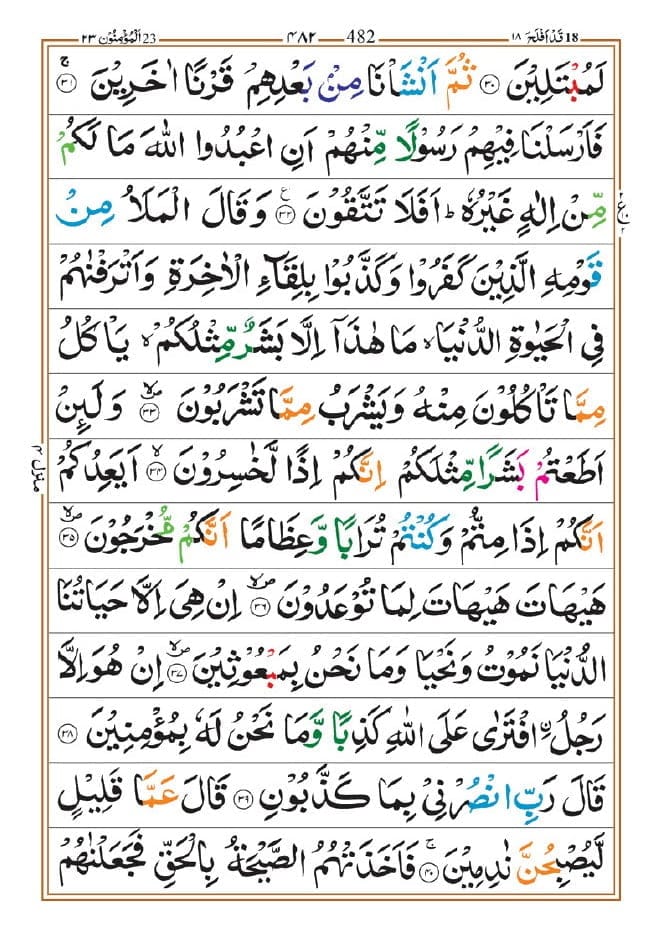 18 قَدْ اَفْلَحَ ١٨ 482 ٤٨٢ 23 اَلْمُؤْمِنُوْن ٢٣
لَمُبْتَلِيْنَ ﴿۳۰﴾ ثُمَّ اَنْشَاْنَا مِنْۢ بَعْدِهِمْ قَرْنًا اٰخَرِيْنَ ۚ ﴿۳۱﴾
فَاَرْسَلْنَا فِيْهِمْ رَسُوْلًا مِّنْهُمْ اَنِ اعْبُدُوا اللّٰهَ مَا لَكُمْ
مِّنْ اِلٰهٍ غَيْرُهٗ ؕ اَفَلَا تَتَّقُوْنَ ﴿۳۲﴾ ع وَقَالَ الْمَلَاُ مِنْ
قَوْمِهِ الَّذِيْنَ كَفَرُوْا وَكَذَّبُوْا بِلِقَآءِ الْاٰخِرَةِ وَاَتْرَفْنٰهُمْ
فِي الْحَيٰوةِ الدُّنْيَا ۙ مَا هٰذَاۤ اِلَّا بَشَرٌ مِّثْلُكُمْ ۙ يَاْكُلُ
مِمَّا تَاْكُلُوْنَ مِنْهُ وَيَشْرَبُ مِمَّا تَشْرَبُوْنَ ۙ ﴿۳۳﴾ وَلَىِٕنْ
اَطَعْتُمْ بَشَرًا مِّثْلَكُمْ اِنَّكُمْ اِذًا لَّخٰسِرُوْنَ ۙ ﴿۳۴﴾ اَيَعِدُكُمْ
اَنَّكُمْ اِذَا مِتُّمْ وَكُنْتُمْ تُرَابًا وَّعِظَامًا اَنَّكُمْ مُّخْرَجُوْنَ ۙ ﴿۳۵﴾
هَيْهَاتَ هَيْهَاتَ لِمَا تُوْعَدُوْنَ ۙ ﴿۳۶﴾ اِنْ هِيَ اِلَّا حَيَاتُنَا
الدُّنْيَا نَمُوْتُ وَنَحْيَا وَمَا نَحْنُ بِمَبْعُوْثِيْنَ ۙ ﴿۳۷﴾ اِنْ هُوَ اِلَّا
رَجُلُ ۨافْتَرٰى عَلَى اللّٰهِ كَذِبًا وَّمَا نَحْنُ لَهٗ بِمُؤْمِنِيْنَ ﴿۳۸﴾
قَالَ رَبِّ انْصُرْنِيْ بِمَا كَذَّبُوْنِ ﴿۳۹﴾ قَالَ عَمَّا قَلِيْلٍ
لَّيُصْبِحُنَّ نٰدِمِيْنَ ۚ ﴿۴۰﴾ فَاَخَذَتْهُمُ الصَّيْحَةُ بِالْحَقِّ فَجَعَلْنٰهُمْ
منزل ۴